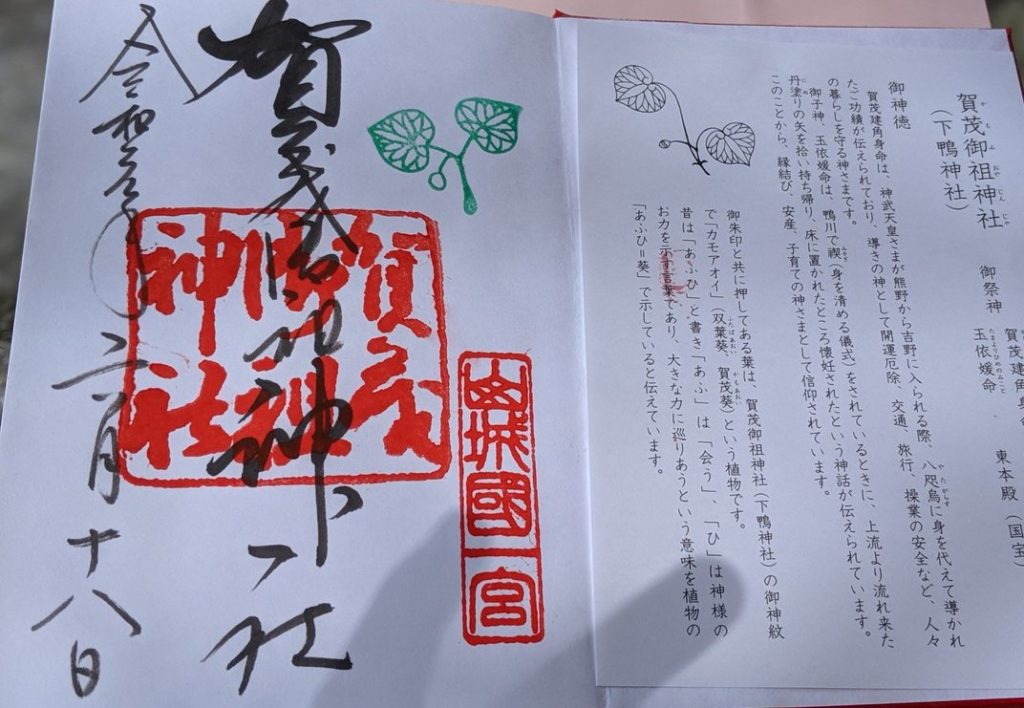 賀茂建角身
賀茂御祖神社 御祭神 玉依媛命 東本殿(国宝)
(下鴨神社)
御神徳
賀茂建角身命は、神武天皇さまが熊野から吉野に入られる際、八咫烏に身を代えて導かれ
たご功績が伝えられており、導きの神として開運厄除、交通、旅行、操業の安全など、人々
の暮らしを守る神さまです。
御子神、玉依媛命は、鴨川で禊(身を清める儀式)をされているときに、上流より流れ来た
丹塗りの矢を拾い持ち帰り、床に置かれたところ懐妊されたという神話が伝えられています。
このことから、縁結び、安産、子育ての神さまとして信仰されています。
御朱印と共に押してある葉は、賀茂御祖神社(下鴨神社)の御神紋
で「カモアオイ」(双葉葵、賀茂葵)という植物です。
昔は「あふひ」と書き「あふ」は「会う」、「ひ」は神様の
お力を示す言葉であり、大きな力に巡りあうという意味を植物の
「あふひ=葵」で示していると伝えています。
山城國一宮
賀茂御祖神社
賀茂御祖神社
令和 二月十八日